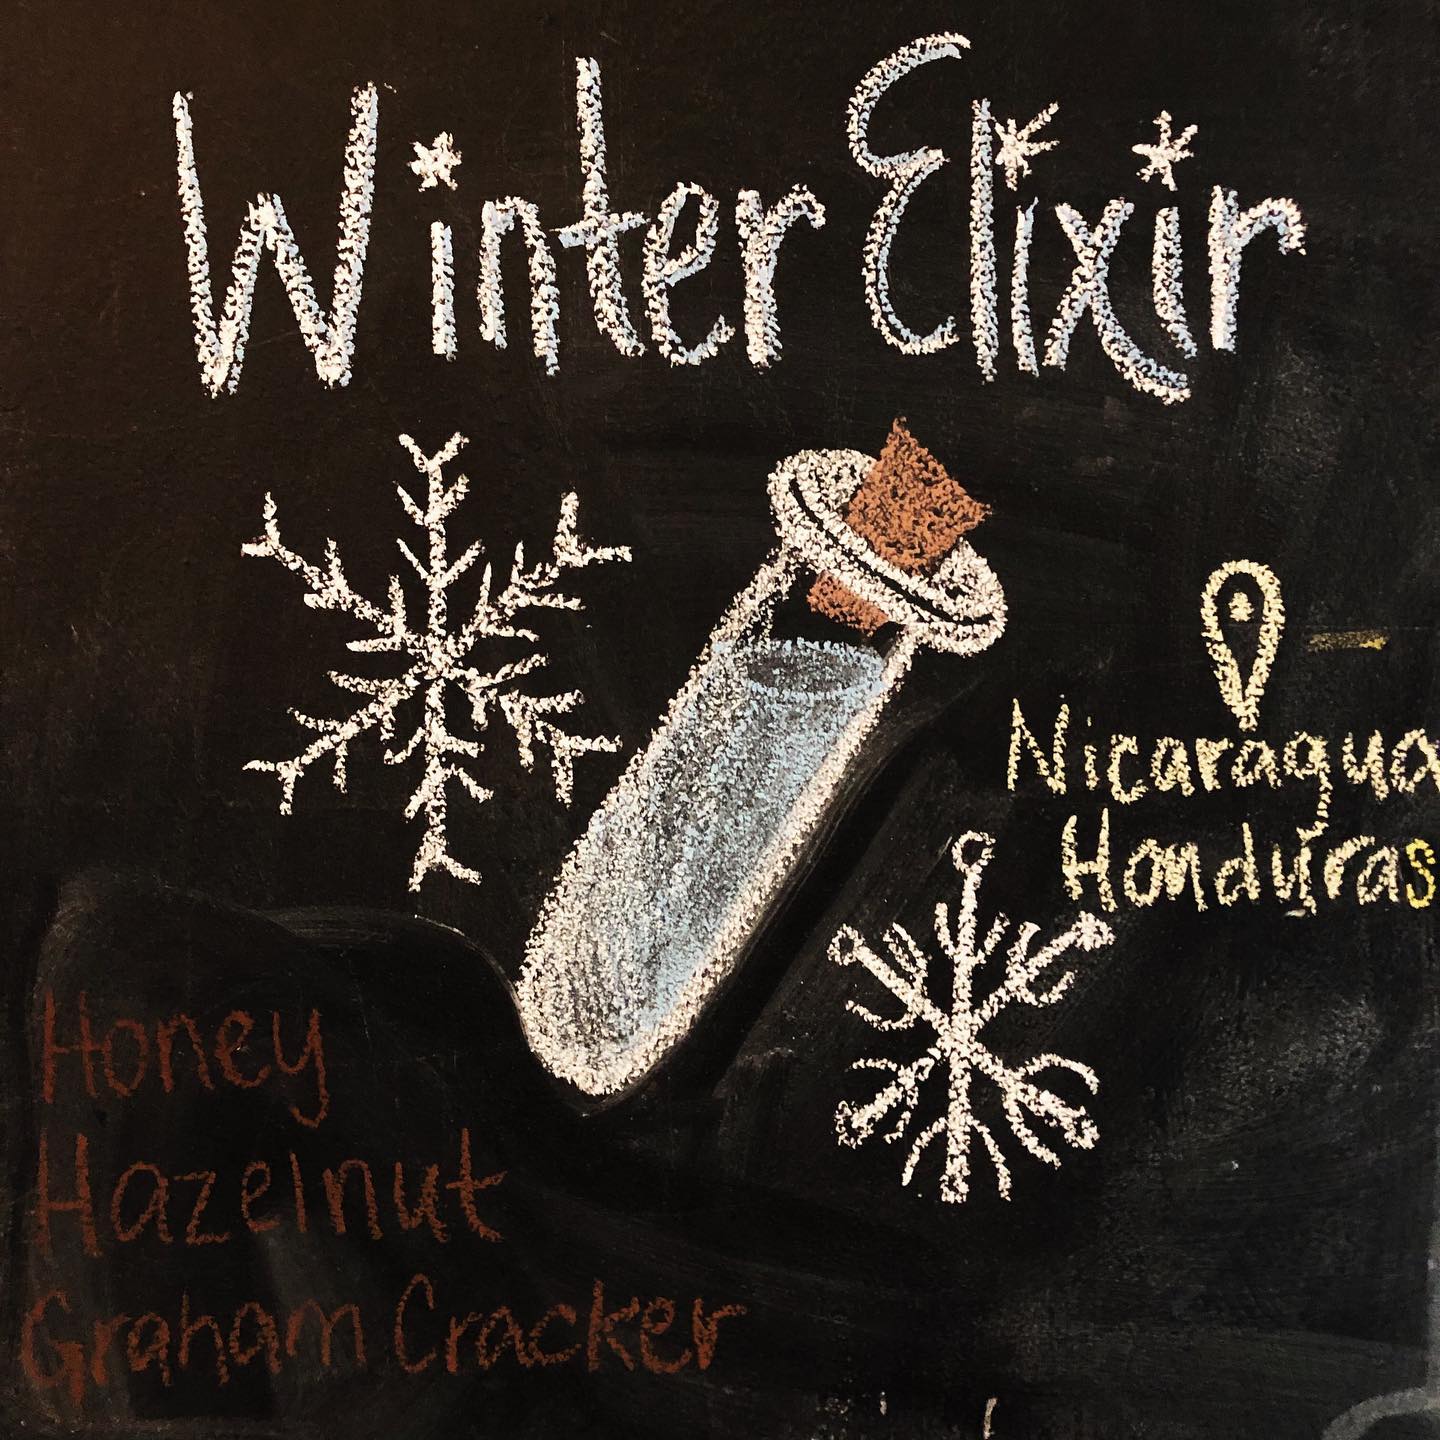 Winter Elixir
Nicaragua
Honduras
Honey
Hazelnut
Graham Cracker